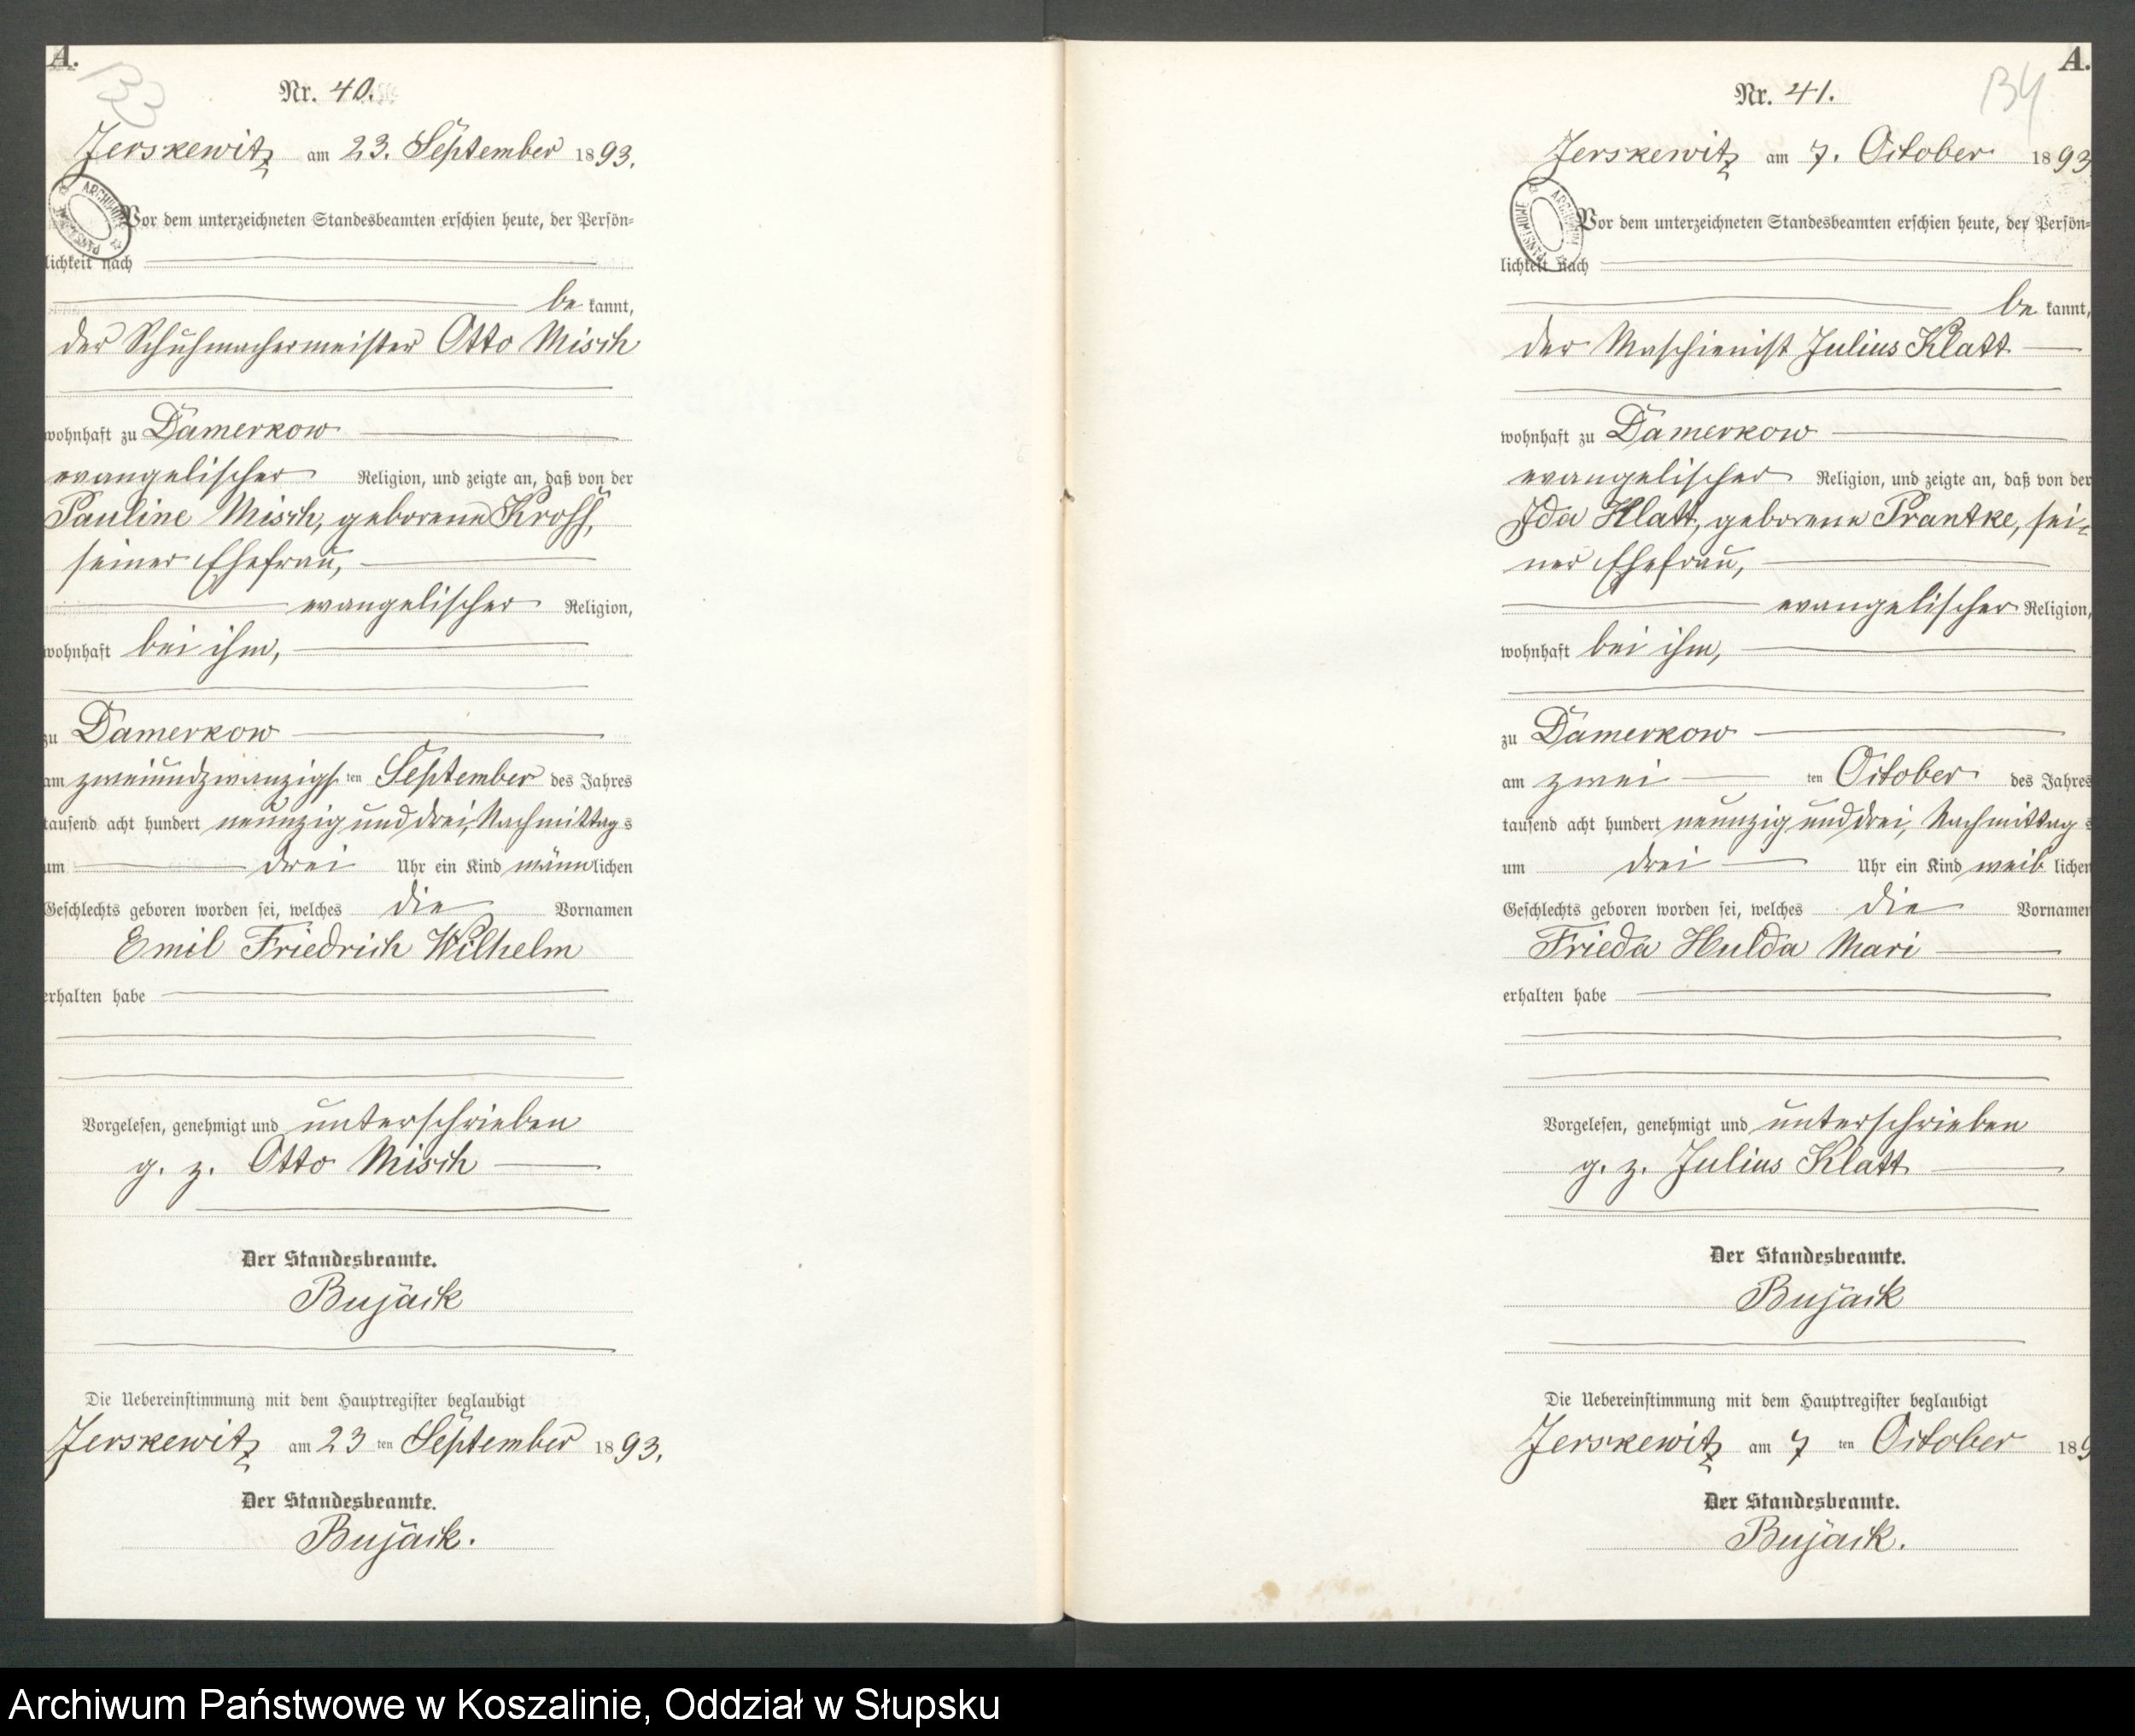 A.
133
Nr. 40.
Jerskewitz am 23. September 1893.
ARCHIWUM PAŃSTWOWE
Vor dem unterzeichneten Standesbeamten erschien heute, der Persön=
lichkeit nach
be kannt,
der Schuhmachermeister Otto Misch
wohnhaft zu Damerkow
evangelischer Religion, und zeigte an, daß von der
Pauline Misch, geborene
seiner Ehefrau,
evangelischer Religion,
wohnhaft bei ihm,
zu Damerkow
am zweiundzwanzigs ten September des Jahres
tausend acht hundert neunzig und drei, Nachmittags
um drei Uhr ein Kind männlichen
Geschlechts geboren worden sei, welches die Vornamen
Emil Friedrich Wilhelm
erhalten habe
Vorgelesen, genehmigt und unterschrieben
g. z. Otto Misch
Der Standesbeamte.
Bujack
Die Uebereinstimmung mit dem Hauptregister beglaubigt
Jerskewitz am 23 ten September 1893.
Der Standesbeamte.
Bujack.
A.
134
Nr. 41.
Jerskewitz am 7. October 1893
ARCHIWUM PAŃSTWOWE
Vor dem unterzeichneten Standesbeamten erschien heute, der Persön=
lichkeit nach
be kannt,
der Maschienist Julius Klatt
wohnhaft zu Damerkow
evangelischer Religion, und zeigte an, daß von der
Ida Klatt, geborene Prantke, sei=
ner Ehefrau,
evangelischer Religion,
wohnhaft bei ihm,
zu Damerkow
am zwei ten October des Jahres
tausend acht hundert neunzig und drei, Nachmittag s
um drei Uhr ein Kind weib lichen
Geschlechts geboren worden sei, welches die Vornamen
Frieda Hulda Mari
erhalten habe
Vorgelesen, genehmigt und unterschrieben
g. z. Julius Klatt
Der Standesbeamte.
Bujack
Die Uebereinstimmung mit dem Hauptregister beglaubigt
Jerskewitz am 7 ten October 189
Der Standesbeamte.
Bujack.
Archiwum Państwowe w Koszalinie, Oddział w Słupsku